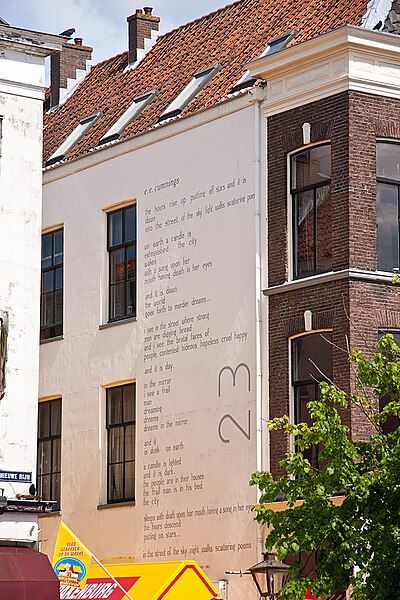 e.e. cummings
the hours rise up putting off stars and it is
dawn
into the street of the sky light walks scattering poems
on earth a candle is
extinguished the city
wakes
with a song upon her
mouth having death in her eyes
and it is dawn
the world
goes forth to murder dreams...
i see in the street where strong
men are digging bread
and i see the brutal faces of
people contented hideous hopeless cruel happy
and it is day
in the mirror
i see a frail
man
dreaming
dreams
dreams in the mirror
and it
is dusk on earth
a candle is lighted
and it is dark
the people are in their houses
the frail man is in his bed
the city
sleeps with death upon her mouth having a song in her eyes
the hours descend
putting on stars...
in the street of the sky night walks scattering poems
23
NIEUWE RIJN
VERS
GEBAKKEN
OP DE MARKT